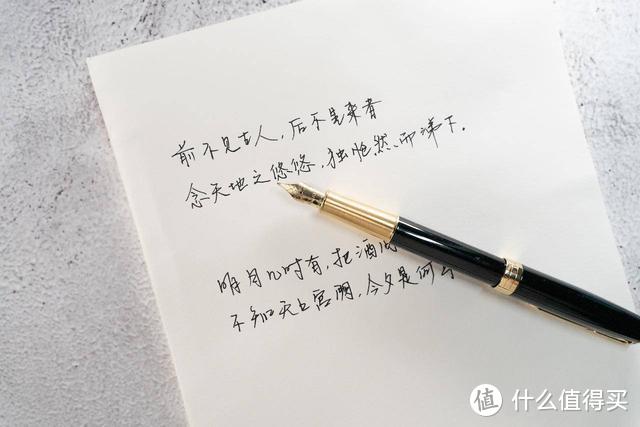 前不见古人，后不见来者
念天地之悠悠，独怆然而涕下。
明月几时有，把酒
不知天上宫阙，今夕是何
值 什么值得买